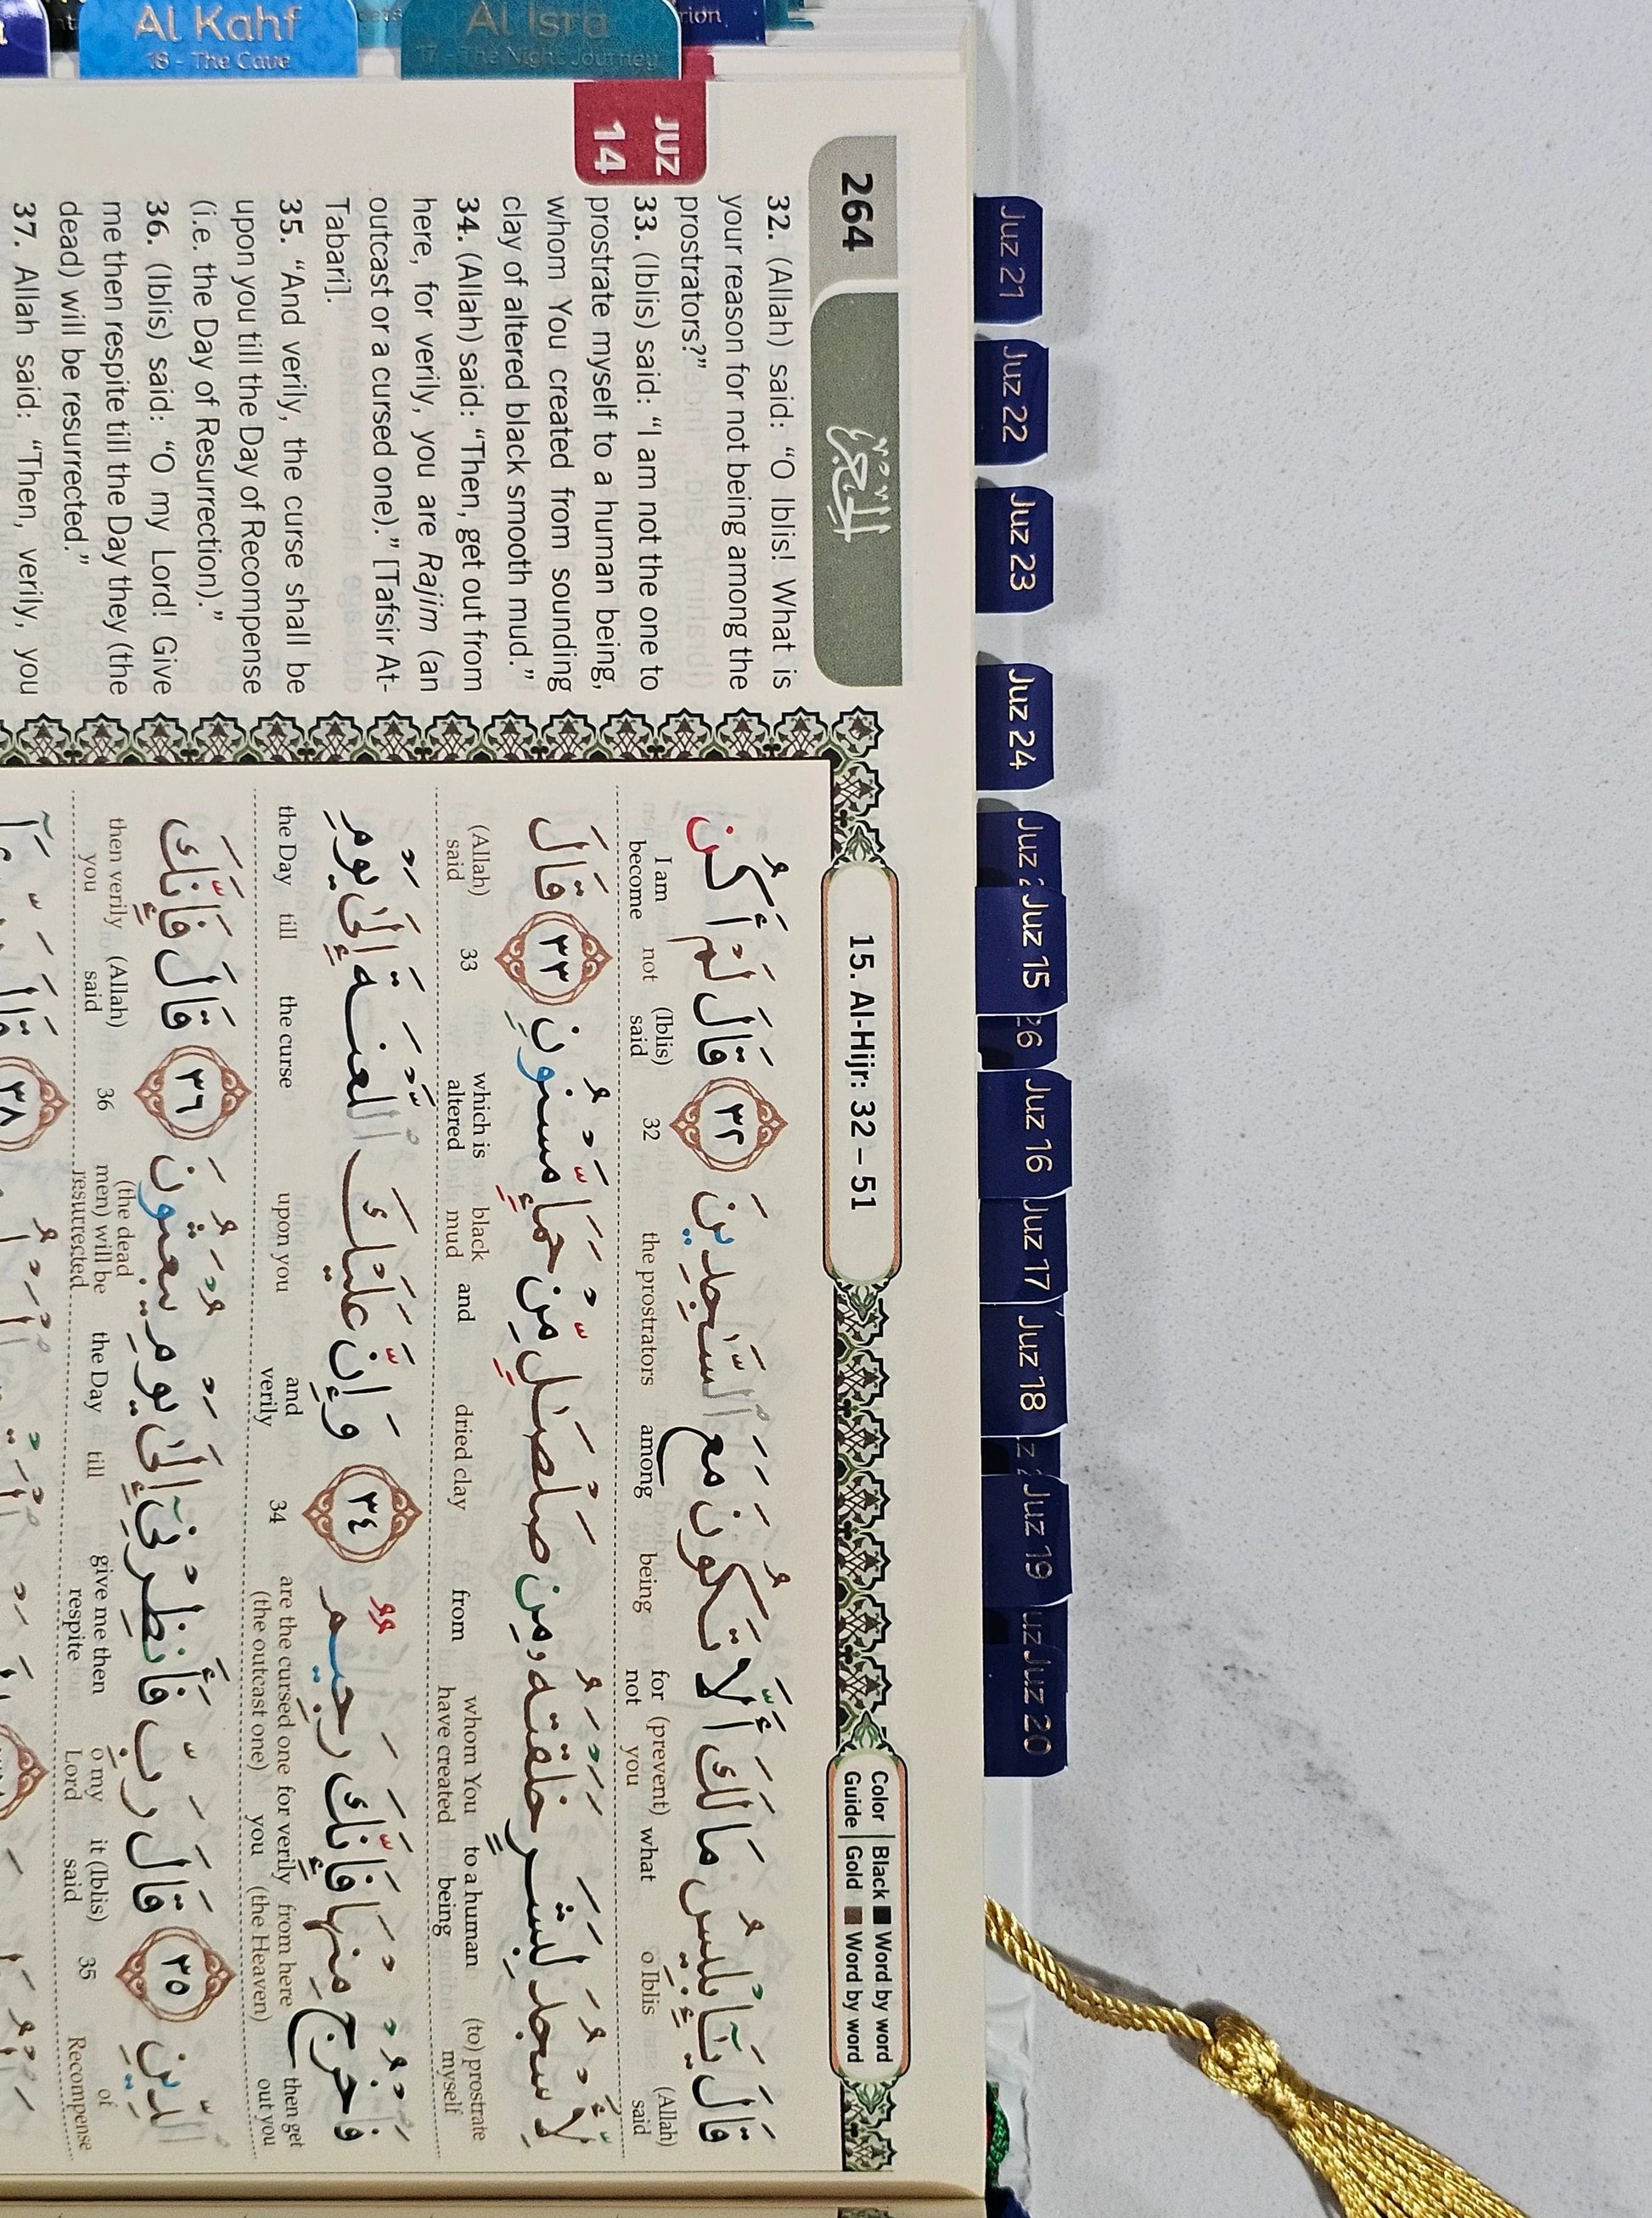 Al Kahf
18 - The Cave
Al Isra
17 - The Night Journey
JUZ
14
264
الحجر
15. Al-Hijr: 32 – 51
Color Guide
Black Word by word
Gold Word by word
32. (Allah) said: “O Iblis! What is
your reason for not being among the
prostrators?”
33. (Iblis) said: “I am not the one to
prostrate myself to a human being,
whom You created from sounding
clay of altered black smooth mud.”
34. (Allah) said: “Then, get out from
here, for verily, you are Rajim (an
outcast or a cursed one).” [Tafsir At-
Tabari].
35. “And verily, the curse shall be
upon you till the Day of Recompense
(i.e. the Day of Resurrection).”
36. (Iblis) said: “O my Lord! Give
me then respite till the Day they (the
dead) will be resurrected.”
37. Allah said: “Then, verily, you
قَالَ يَـٰٓإِبْلِيسُ مَا لَكَ أَلَّا تَكُونَ مَعَ ٱلسَّـٰجِدِينَ ٣٢ قَالَ لَمْ أَكُن
(Allah) said o Iblis what (prevent) you for not being among the prostrators 32 (Iblis) said not I am become
لِّأَسْجُدَ لِبَشَرٍ خَلَقْتَهُۥ مِن صَلْصَـٰلٍ مِّنْ حَمَإٍ مَّسْنُونٍ ٣٣ قَالَ
(to) prostrate myself to a human being whom You have created from dried clay and black mud which is altered 33 (Allah) said
فَٱخْرُجْ مِنْهَا فَإِنَّكَ رَجِيمٌ ٣٤ وَإِنَّ عَلَيْكَ ٱللَّعْنَةَ إِلَىٰ يَوْمِ
then get out you from here (the Heaven) for verily you are the cursed one (the outcast one) 34 and verily upon you the curse till the Day
ٱلدِّينِ ٣٥ قَالَ رَبِّ فَأَنظِرْنِىٓ إِلَىٰ يَوْمِ يُبْعَثُونَ ٣٦ قَالَ فَإِنَّكَ
of Recompense 35 it (Iblis) said o my Lord give me then respite till the Day (the dead men) will be resurrected 36 (Allah) said then verily you
٣٨
Juz 21
Juz 22
Juz 23
Juz 24
Juz
Juz 15
26
Juz 16
Juz 17
Juz 18
Juz 19
Juz 20